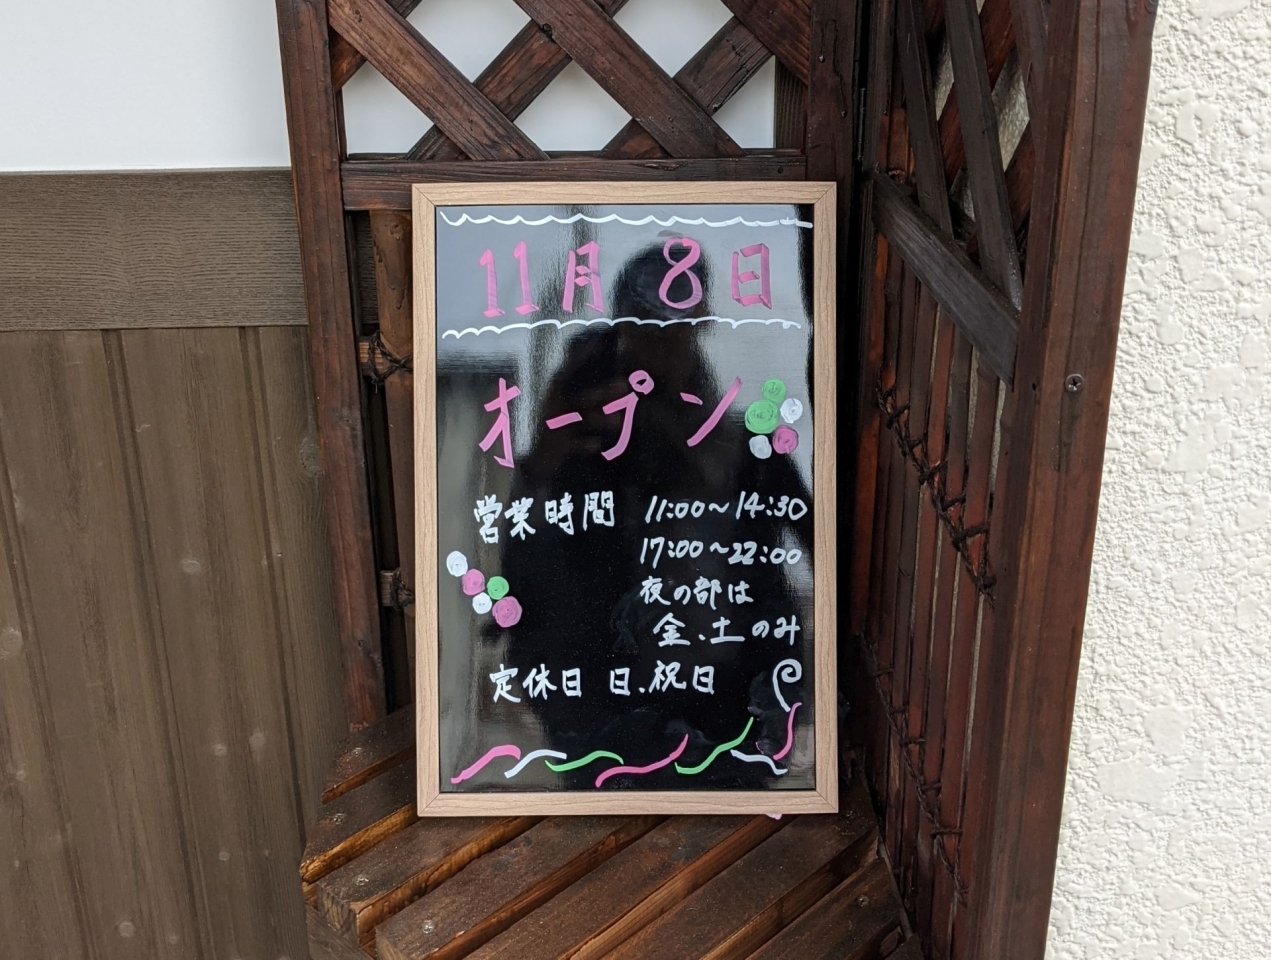 11月 8日
オープン
営業時間 11:00〜14:30
17:00〜22:00
夜の部は
金、土のみ
定休日 日、祝日